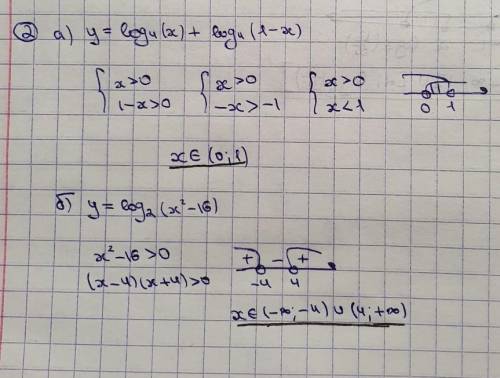 ② а) y = log₄(x) + log₄(1-x)
{ x>0 { x>0 { x>0
{ 1-x>0 { -x>-1 { x<1
0 1
x∈(0;1)
б) y = log₂(x²-16)
x²-16>0 + - +
(x-4)(x+4)>0 -4 4
x∈(-∞;-4)∪(4;+∞)